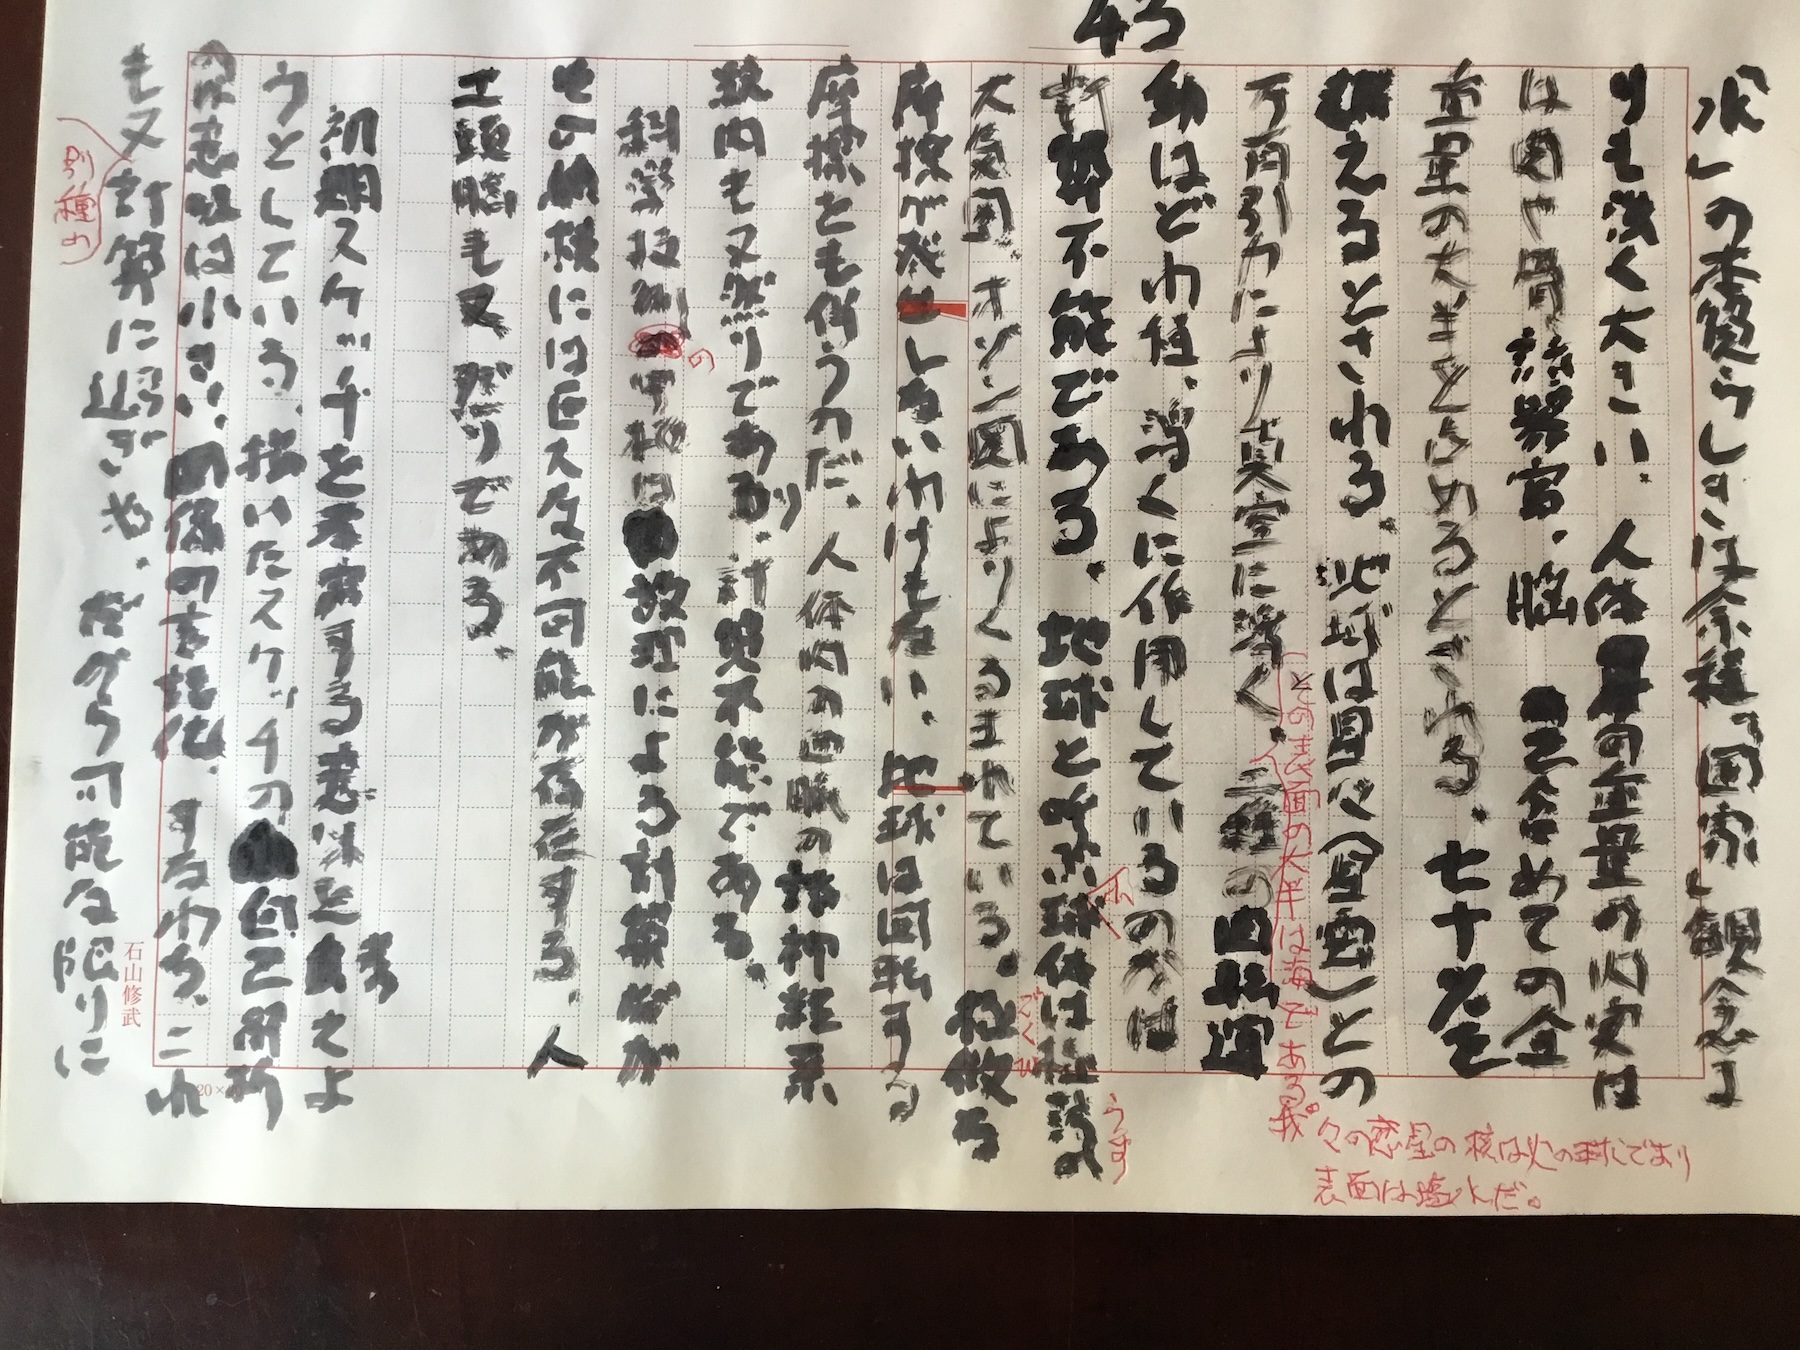 43
「水」の本質らしきは余程、「国家」観念よ
りも深く大きい。人体の重量の内実は
は肉や骨、諸器官、脳 を含めての全
重量の大きを占めるとされる。七十%を
超えるとされる。地球は日々(星雲)との
万有引力により真空に浮く。二種の回転運
動はどれ程、浮くに作用しているのかは
計算不能である。地球と呼ぶ球体は極薄の
大気圏、オゾン圏によりくるまれている。極微ろ
摩擦が発しないわけもない。地球は回転する
摩擦とも伴うのだ。人体内の回転の諸神経系
統内も又然りであり、計算不能である。
科学技術の 手始は 数理による計算だが
その枠横には巨大な不可能が存在する。人
工頭脳も又然りである。
初期スケッチを考察する意味を考えよ
うとしている。描いたスケッチの 自己解析
の意味は小さい。図像の言語化、すなわち、これ
も又計算に過ぎぬ。だから可能な限りに
別種の
の
とその表面の大半は海である。我
々の惑星の核は火の球であり
表面は塩水だ。
水
ごくび
うす
石山修武
20×